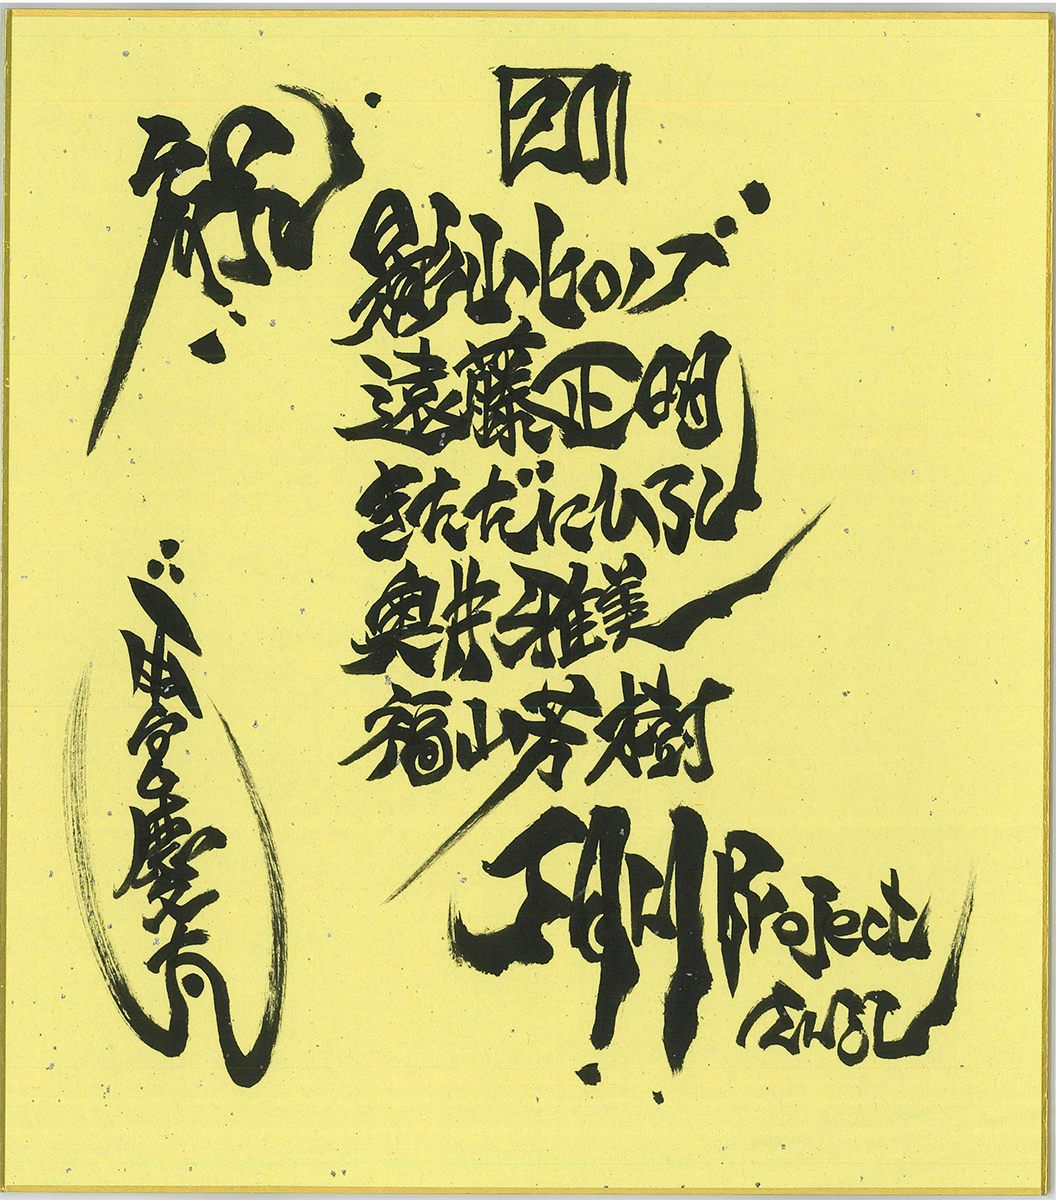 祝
20
影山ヒロノブ
遠藤正明
きただにひろし
奥井雅美
福山芳樹
JAM Project
雨宮慶太